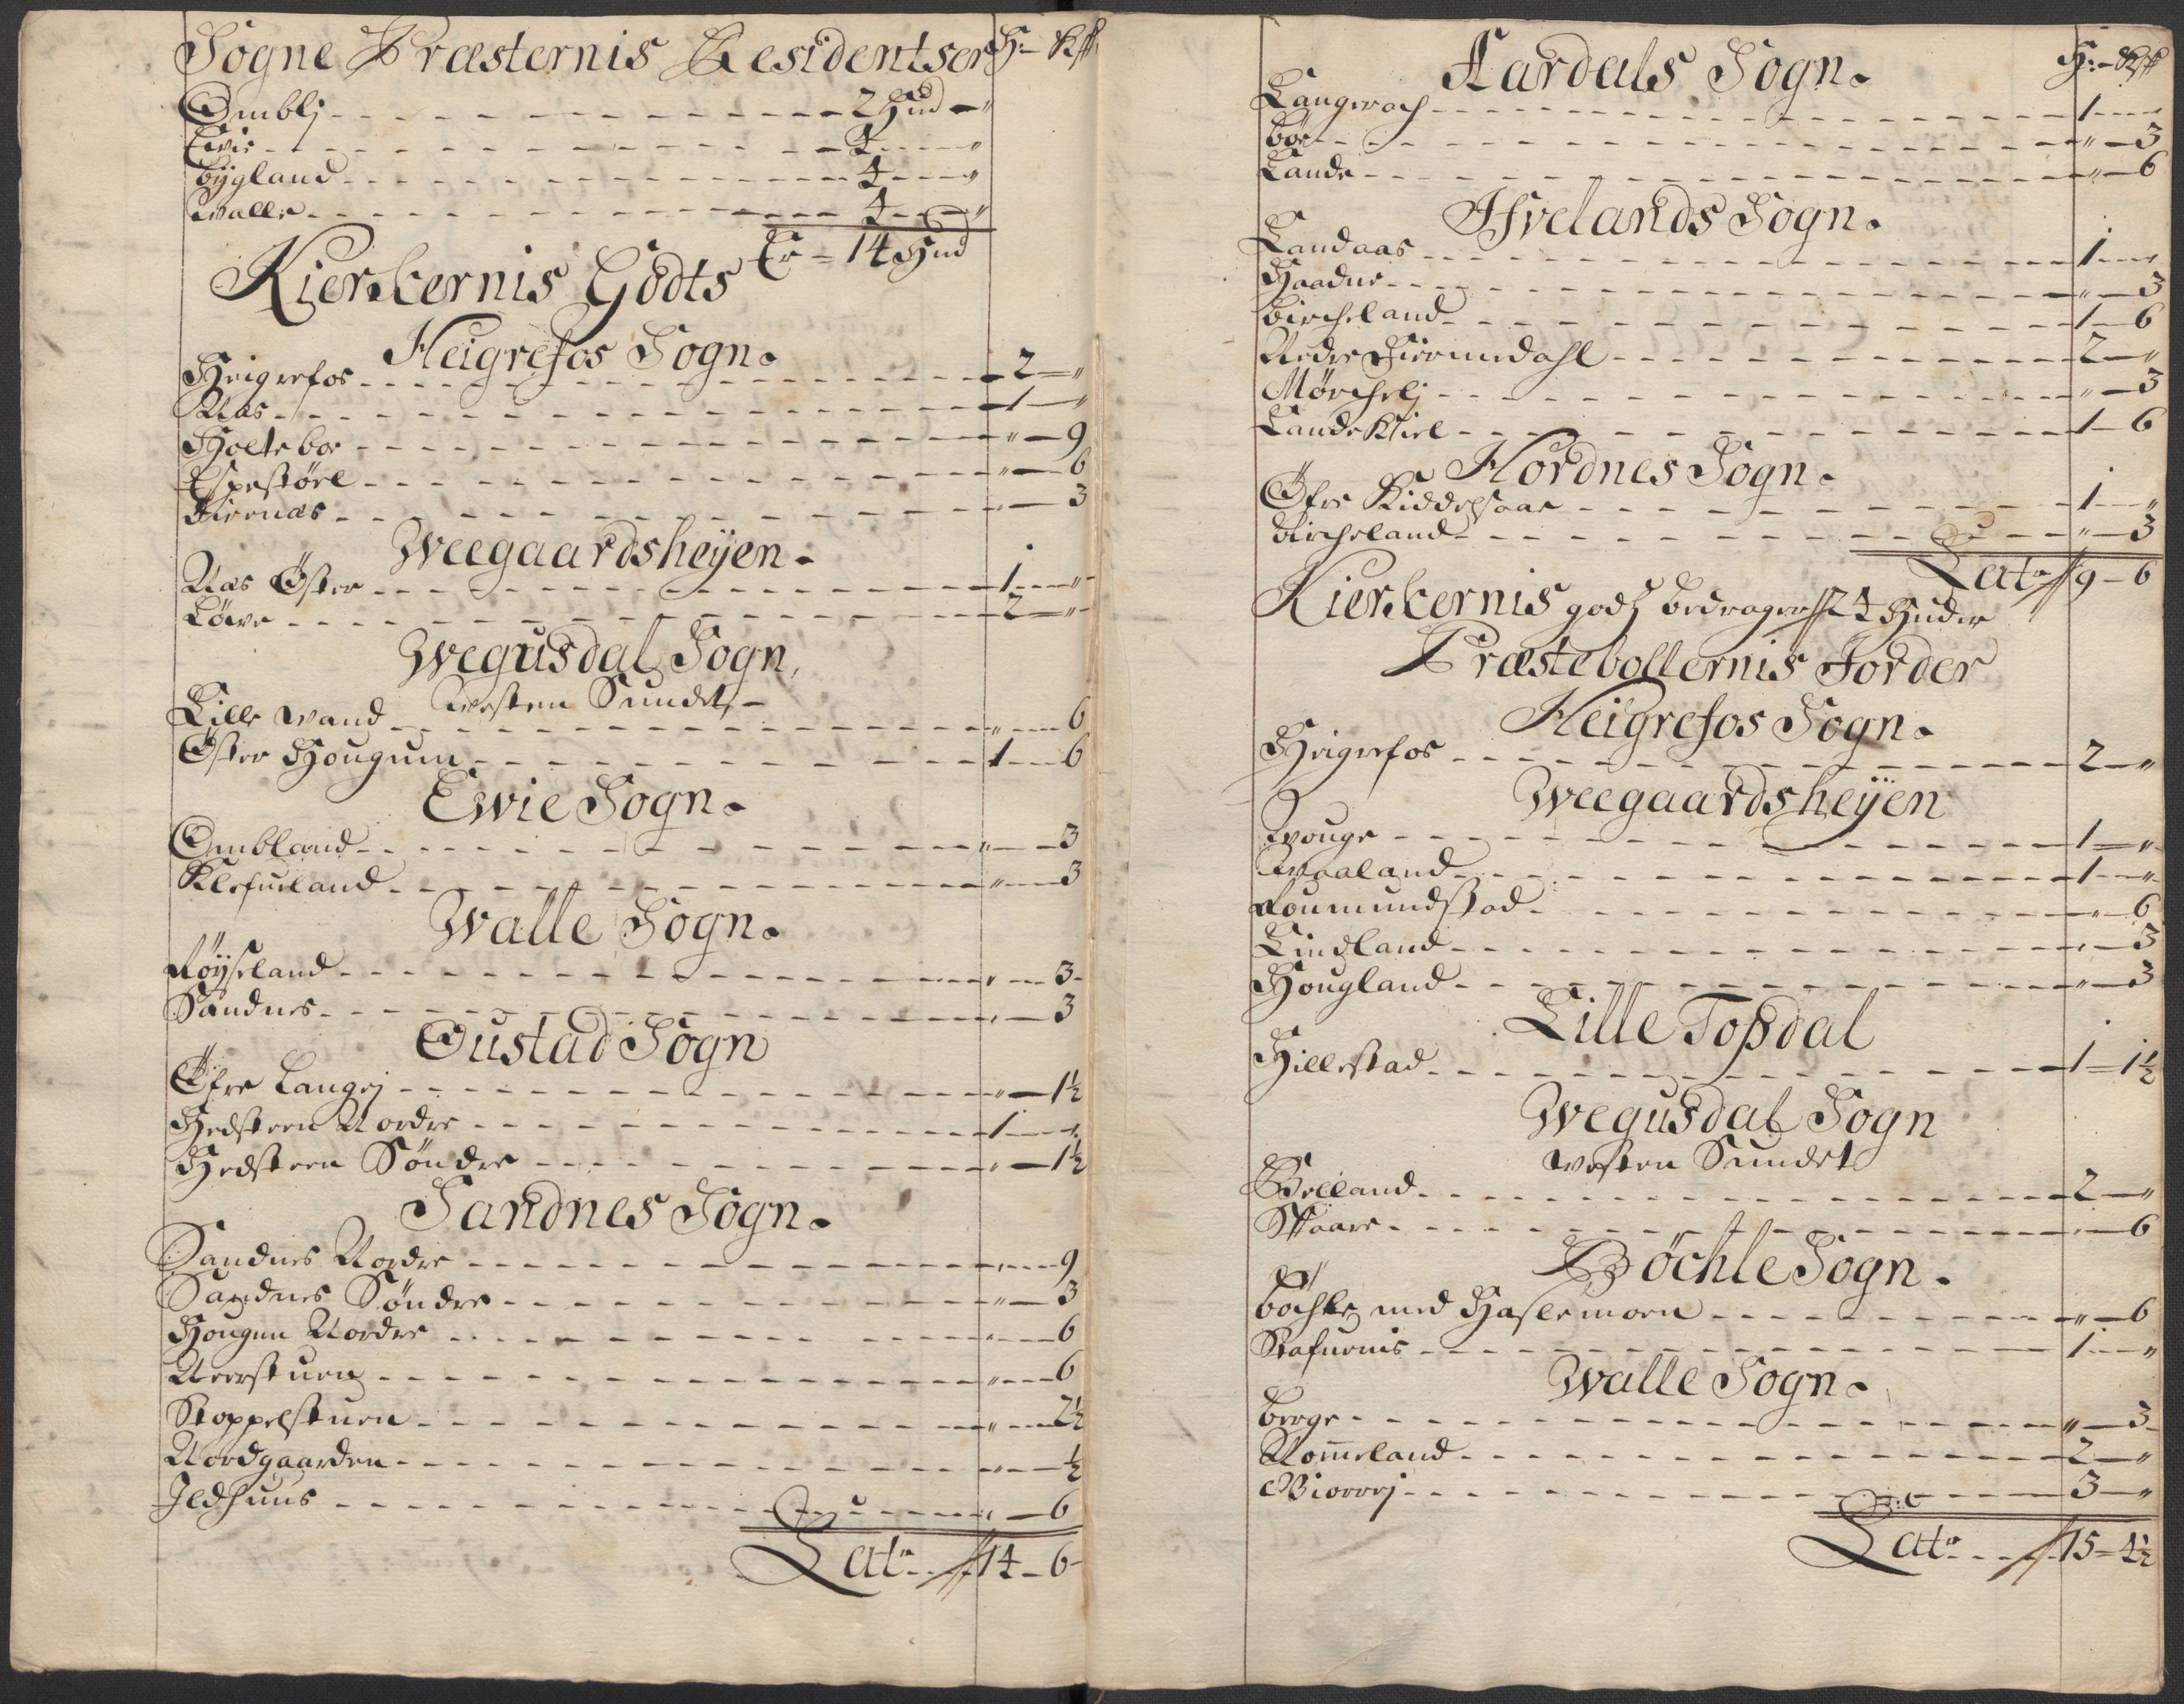 Sogne Præsternis Residentser H:- Kß
Omblj - - - 2 Hud - "
Evie - - - 4 - "
Bygland - - - 4 - "
Walle - - - 4 - "
Er = 14 Hud
Kierkernis Godts
Heigrefos Sogn.
Heigrefos - - - 2 - "
Aas - - - 1 - "
Holtebor - - - " - 9
Espestøel - - - " - 6
Birenæs - - - " - 3
Weegaardsheÿen.
Aas Øster - - - 1 - "
Løwe - - - 2 - "
Wegusdal Sogn,
Westen Sundet,
Lille Wand - - - " - 6
Øster Hougum - - - 1 - 6
Ewie Sogn.
Ombland - - - " - 3
Klefueland - - - " - 3
Walle Sogn.
Røÿseland - - - " - 3
Sandnes - - - " - 3
Oustad Sogn
Øfre Langej - - - " - 1½
Hedsteen Nordre - - - 1 - "
Hedsteen Søndre - - - " - 1½
Sandnes Sogn.
Sandnes Nordre - - - " - 9
Sandnes Søndre - - - " - 3
Hougen Nordre - - - " - 6
Neerstuen - - - " - 6
Stoppelstuen - - - " - 2½
Nordgaarden - - - " - ½
Ildhuus - - - " - 6
Lat: 14 - 6
Aardals Sogn. H:- Kß
Langerach - - - 1 - "
Bøe - - - " - 3
Lande - - - " - 6
Ifvelands Sogn.
Landaas - - - 1 - "
Haadne - - - " - 3
Bircheland - - - 1 - 6
Nedre Fiermedahl - - - 2 - "
Mørchelj - - - " - 3
Lande Kiil - - - 1 - 6
Hordnes Sogn.
Øfre Kiddelsaae - - - 1 - "
Bircheland - - - " - 3
Lat: 9 - 6
Kierkernis godtz bedrager 24 Huder
Præstebollernis Jorder
Heigrefos Sogn.
Heigrefos - - - 2 - "
Weegaardsheÿen
Wouge - - - 1 - "
Waaland - - - 1 - "
Roumundstad - - - " - 6
Lindland - - - " - 3
Hougland - - - " - 3
Lille Topdal
Hillestad - - - 1 - 1½
Wegusdal Sogn
Westen Sundet
Belland - - - 2 - "
Skaare - - - " - 6
Bøchle Sogn.
Bøchle med Haslemoen - - - " - 6
Stafuenis - - - 1 - "
Walle Sogn.
Berge - - - " - 3
Rom̄eland - - - 2 - "
Biorrej - - - 3 - "
Lat: 15 - 4½